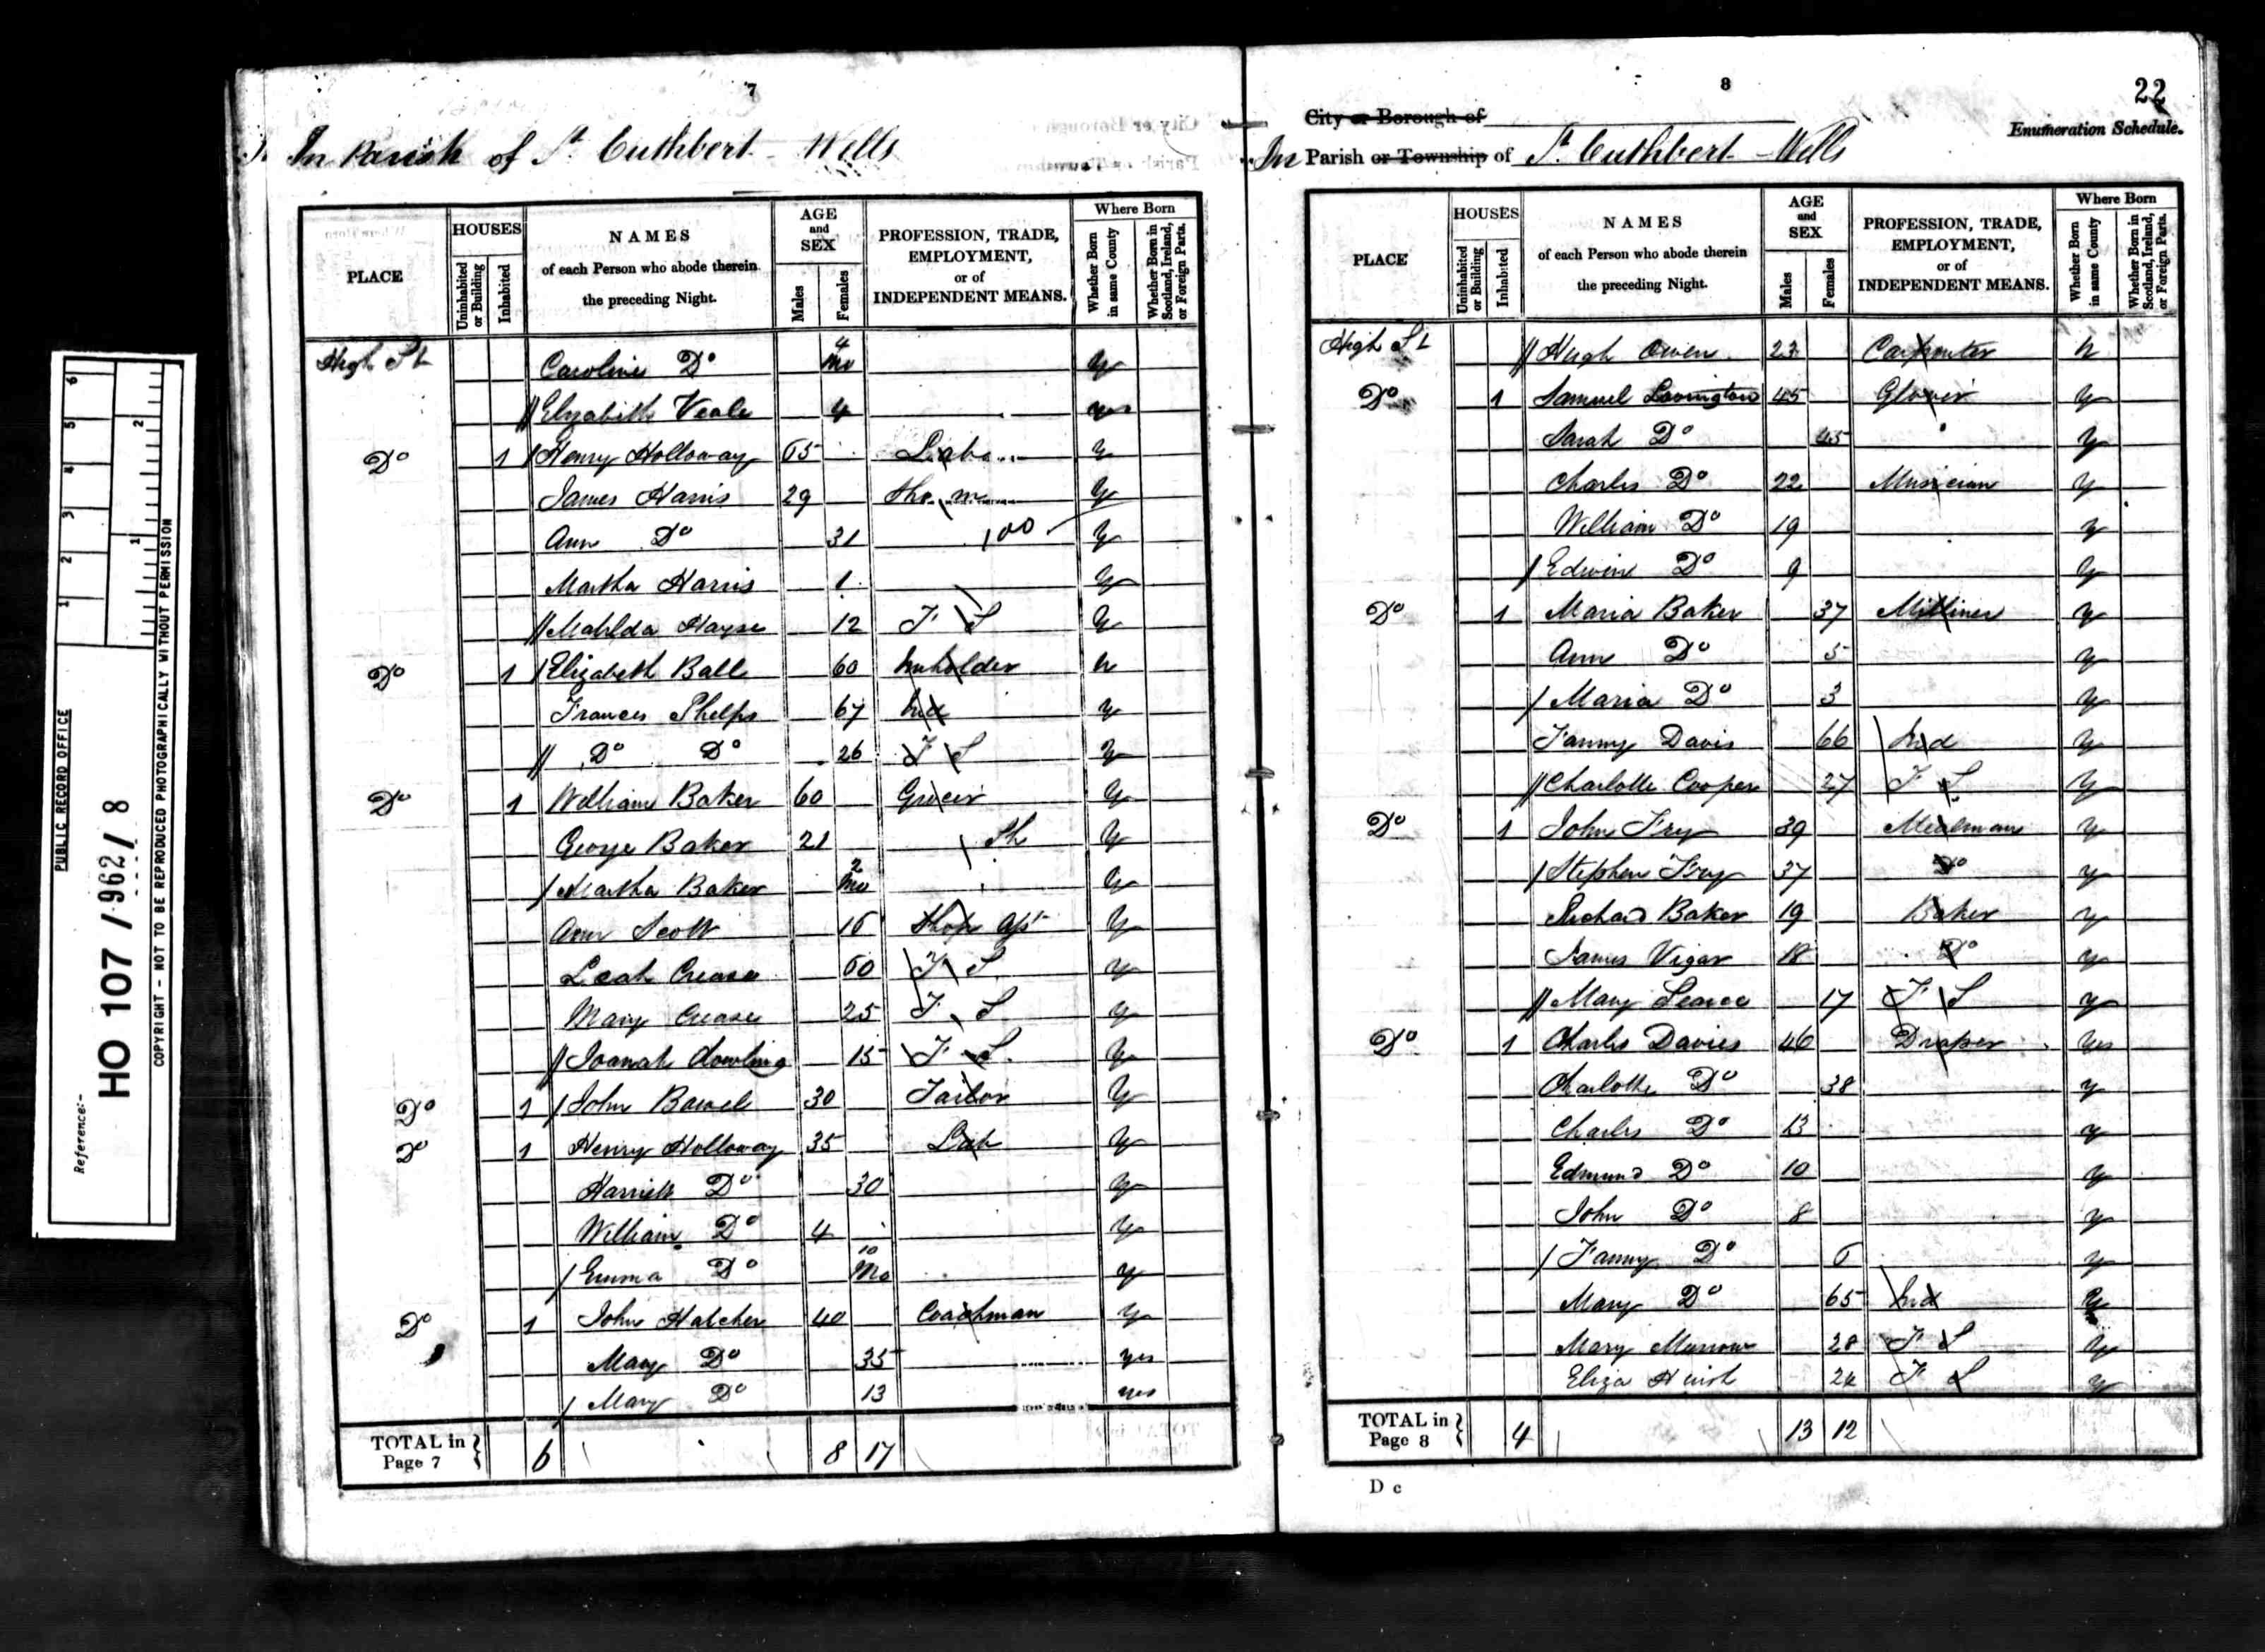 PUBLIC RECORD OFFICE
Reference:-
HO 107 / 962 / 8
COPYRIGHT - NOT TO BE REPRODUCED PHOTOGRAPHICALLY WITHOUT PERMISSION
1 2 3 4 5 6
1 2
7
In Parish of St Cuthbert - Wells
PLACE
HOUSES
Uninhabited or Building
Inhabited
NAMES
of each Person who abode therein
the preceding Night.
AGE
and
SEX
Males
Females
PROFESSION, TRADE,
EMPLOYMENT,
or of
INDEPENDENT MEANS.
Where Born
Whether Born in same County
Whether Born in Scotland, Ireland, or Foreign Parts.
High St Caroline Do 4 Mo y
Elizabeth Veale 4 yes
Do 1 Henry Holloway 65 y
James Harris 29 y
Ann Do 31 y
Martha Harris 1 y
Matilda Hayse 12 F S y
Do 1 Elizabeth Ball 60 Innholder n
Frances Phelps 67 Ind y
Do Do 26 F S y
Do 1 William Baker 60 Grocer y
George Baker 21 Sh y
Martha Baker 2 Mo y
Ann Scott 16 Shop y
Leah Crease 60 F S y
Mary Crease 25 F S y
Joanah Dowling 15 F S y
Do 1 John 30 Tailor y
Do 1 Henry Holloway 35 Lab y
Harriett Do 30 y
William Do 4 y
Emma Do 10 Mo y
Do 1 John Hatcher 40 Coachman y
Mary Do 35 yes
Mary Do 13 yes
TOTAL in Page 7 6 8 17
8
22
City or Borough of
Enumeration Schedule.
In Parish or Township of St Cuthbert - Wells
PLACE
HOUSES
Uninhabited or Building
Inhabited
NAMES
of each Person who abode therein
the preceding Night.
AGE
and
SEX
Males
Females
PROFESSION, TRADE,
EMPLOYMENT,
or of
INDEPENDENT MEANS.
Where Born
Whether Born in same County
Whether Born in Scotland, Ireland, or Foreign Parts.
High St Hugh Owen 23 Carpenter n
Do 1 Samuel Lovington 45 Glover y
Sarah Do 45 y
Charles Do 22 Musician y
William Do 19 y
Edwin Do 9 y
Do 1 Maria Baker 37 Milliner y
Ann Do 5 y
Maria Do 3 y
Fanny Davis 66 Ind y
Charlotte Cooper 27 F S y
Do 1 John Fry 39 Mealman y
Stephen Fry 37 Do y
Richard Baker 19 Baker y
James Vigar 18 Do y
Mary Pearce 17 F S y
Do 1 Charles Davies 46 Draper yes
Charlotte Do 38 y
Charles Do 13 y
Edmund Do 10 y
John Do 8 y
Fanny Do 6 y
Mary Do 65 Ind y
Mary 28 F S y
Eliza 24 F S y
TOTAL in Page 8 4 13 12
D c